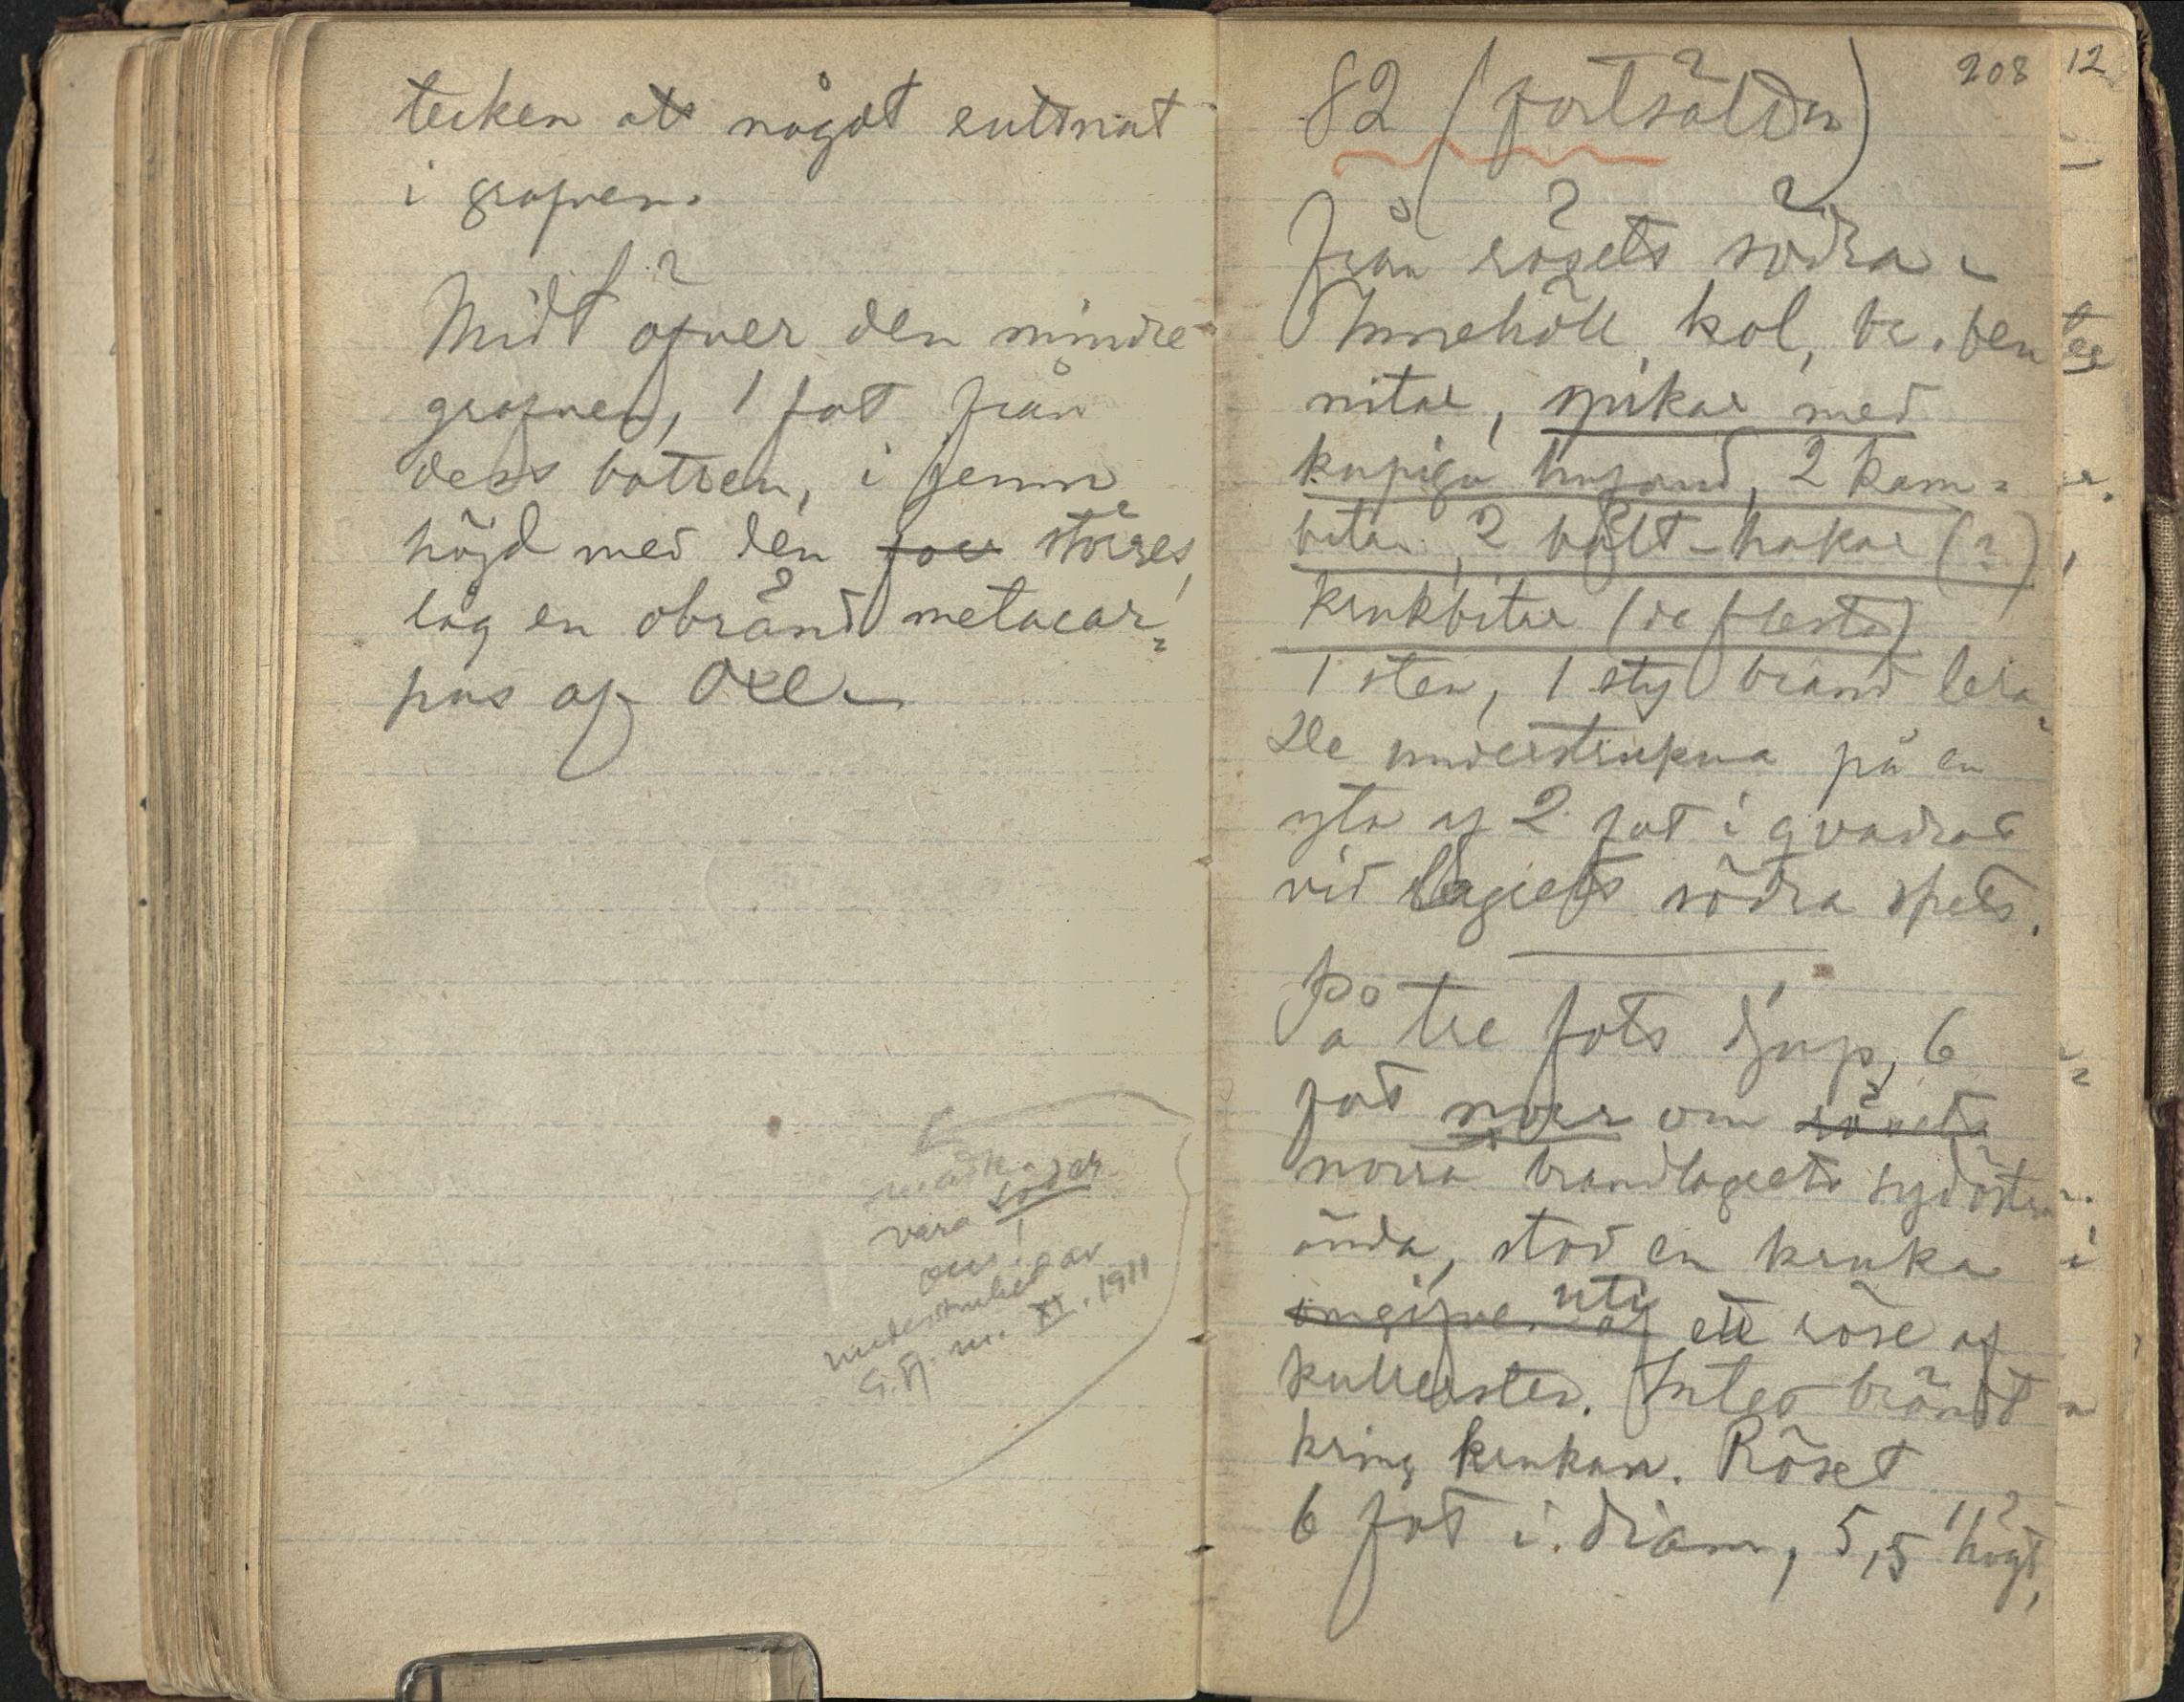 tecken att något eldtnat
i grafven.
Midt öfver den mindre
grafven, 1 fot från
dess botten, i jemn
höjd med den förr större,
låg en obränd metacar=
pus af Oxe.
måste
vara söder
om!
understruket av
G. H. m. XI. 1911
208
12
82 (fortsättn)
från rösets södra.
Innehöll kol, br. ben
nitar, spikar med
kupiga hufvud, 2 kam=
bitar, 2 bält-hakar (?)
krukbitar (de flesta)
1 sten, 1 sty bränd lera.
De understrukna på en
yta af 2 fot i qvadrat
vid lagrets södra spets.
På tre fots djup, 6
fot norr om rösets
norra brandlagrets sydöstra
ända, stod en kruka
omgifven af uti ett röse af
kullersten. Intet brändt
kring krukan. Röset
6 fot i diam, 5,5 " högt,